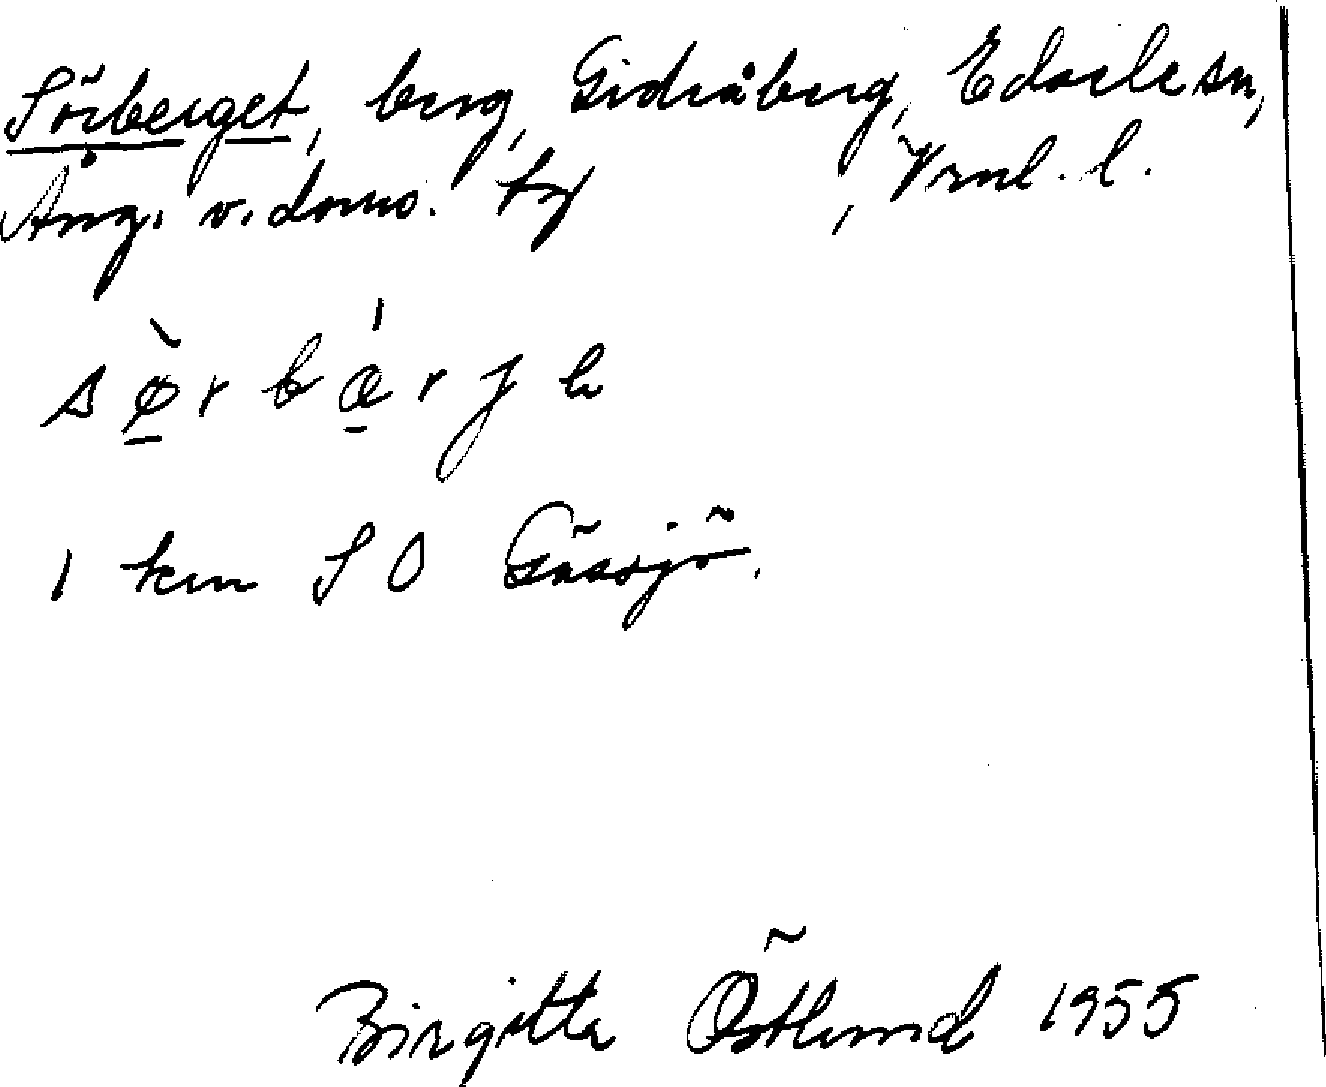 Sörberget, berg, Gidråberg, Edsele sn,
Ång. v. doms. tg , Vrnl. l.
sø̱̀rbǽ̱rjə
1 km SO Gåssjö.
Birgitta Östlund 1955